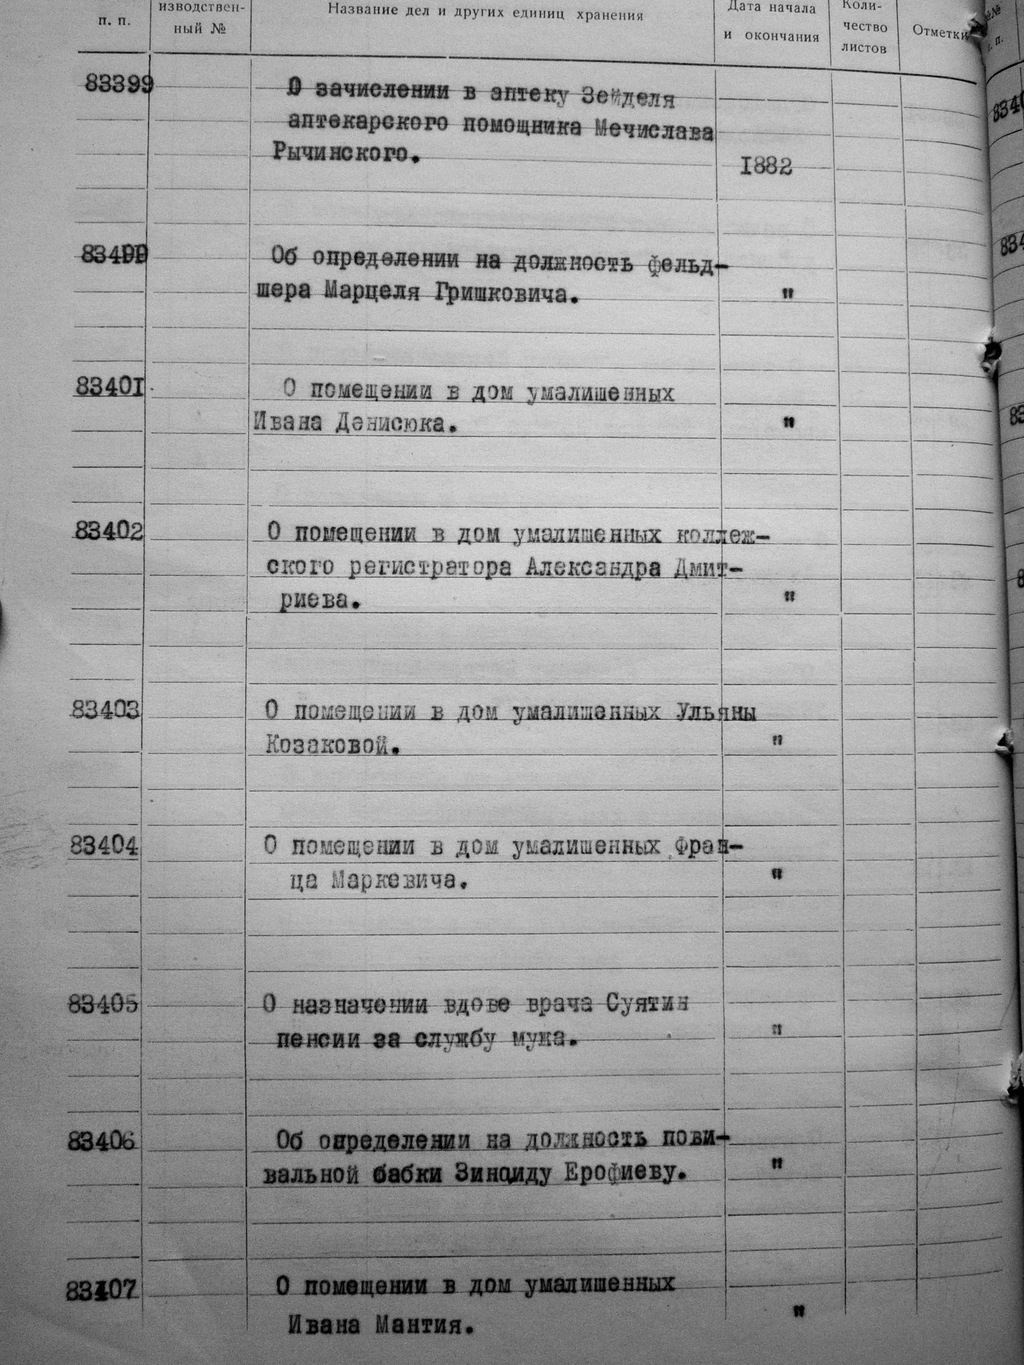 п. п.
изводствен-
ный №
Название дел и других единиц хранения
Дата начала
и окончания
Коли-
чество
листов
Отметки
83399
О зачислении в аптеку Зейделя
аптекарского помощника Мечислава
Рычинского.
1882
Об определении на должность фельд-
шера Марцеля Гришковича.
"
83401
О помещении в дом умалишенных
Ивана Денисюка.
"
83402
О помещении в дом умалишенных коллеж-
ского регистратора Александра Дмит-
риева.
"
83403
О помещении в дом умалишенных Ульяны
Козаковой.
"
83404
О помещении в дом умалишенных Фран-
ца Маркевича.
"
83405
О назначении вдове врача Суятин
пенсии за службу мужа.
"
83406
Об определении на должность пови-
вальной бабки Зинаиду Ерофиеву.
"
83407
О помещении в дом умалишенных
Ивана Мантия.
"